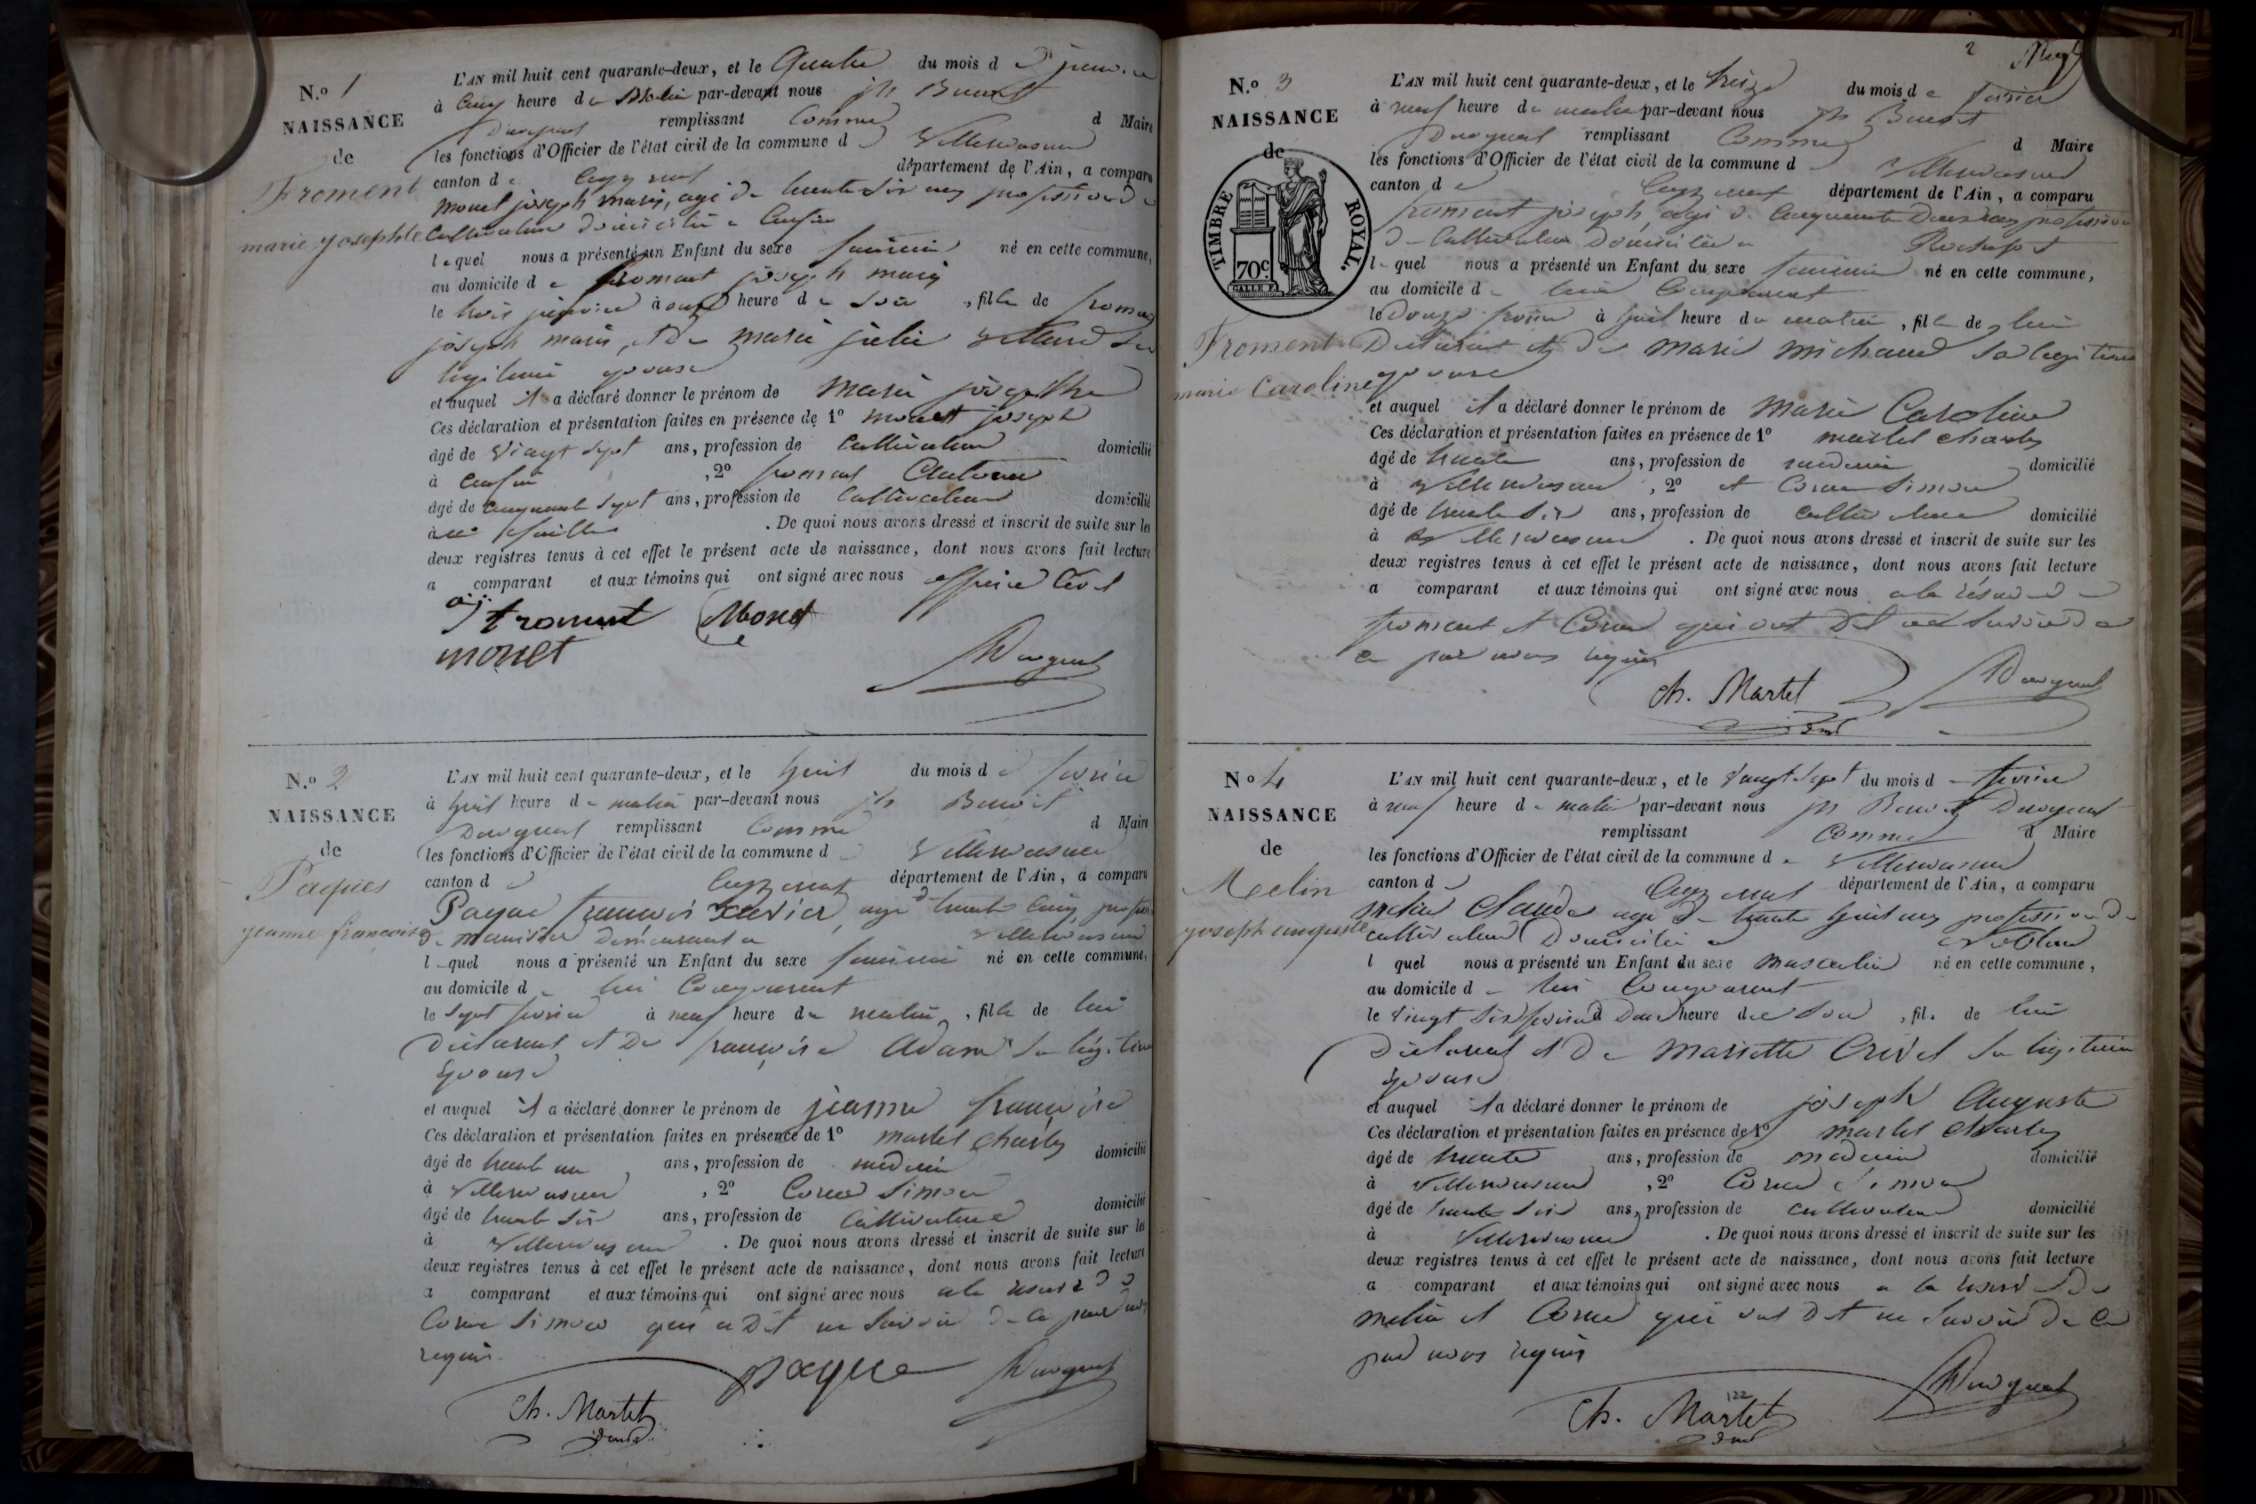 N.º 1
NAISSANCE
de
Froment
marie josephte
L'AN mil huit cent quarante-deux, et le Quatre du mois d e janvier
à cinq heure du Matin par-devant nous jh Benoit
Duroquat remplissant comme d Maire
les fonctions d'Officier de l'état civil de la commune d e Villereversure
canton d e Ceyzeriat département de l'Ain, a comparu
monet joseph marie, agé de trente six ans profession de
Cultivateur domicilié a
lequel nous a présenté un Enfant du sexe feminin né en cette commune,
au domicile d e froment joseph marie
le trois janvier à onze heure du soir, fille de froment
joseph marie, et de marie julie Villard sa
legitime epouse
et auquel il a déclaré donner le prénom de Marie josephte
Ces déclaration et présentation faites en présence de 1º monet joseph
âgé de vingt sept ans, profession de cultivateur domicilié
à , 2º froment
âgé de cinquante sept ans, profession de cultivateur domicilié
à . De quoi nous avons dressé et inscrit de suite sur les
deux registres tenus à cet effet le présent acte de naissance, dont nous avons fait lecture
a comparant et aux témoins qui ont signé avec nous officier Civil
froment Monet
monet
Duroquat
N.º 2
NAISSANCE
de
Paques
jeanne françoise
L'AN mil huit cent quarante-deux, et le huit du mois d e fevrier
à huit heure du matin par-devant nous jh Benoit
Duroquat remplissant comme d Maire
les fonctions d'Officier de l'état civil de la commune d e Villereversure
canton d e Ceyzeriat département de l'Ain, a comparu
Paque françois Xavier, agé de trente cinq profession
de demeurant a Villereversure
lequel nous a présenté un Enfant du sexe feminin né en cette commune,
au domicile d e lui Comparant
le sept fevrier à neuf heure du matin, fille de lui
Declarant et De françoise Adam sa legitime
Epouse
et auquel il a déclaré donner le prénom de jeanne françoise
Ces déclaration et présentation faites en présence de 1º martel charles
âgé de trente un ans, profession de medecin domicilié
à Villereversure, 2º Corne Simon
âgé de trente six ans, profession de cultivateur domicilié
à Villereversure. De quoi nous avons dressé et inscrit de suite sur les
deux registres tenus à cet effet le présent acte de naissance, dont nous avons fait lecture
a comparant et aux témoins qui ont signé avec nous a la reserve de
Corne Simon qui a dit ne savoir de ce par nous
requis
paque Duroquat
Ch. Martet
2
N.º 3
NAISSANCE
de
TIMBRE ROYAL.
70c.
Froment
marie Caroline
L'AN mil huit cent quarante-deux, et le treize du mois d e fevrier
à neuf heure du matin par-devant nous jh Benoit
Duroquat remplissant Comme d Maire
les fonctions d'Officier de l'état civil de la commune d e Villereversure
canton d e Ceyzeriat département de l'Ain, a comparu
froment joseph agé de cinquante deux ans profession
de Cultivateur Domicilié a Rochefort
lequel nous a présenté un Enfant du sexe feminin né en cette commune,
au domicile d e lui Comparant
le Douze fevrier à huit heure du matin, fille de lui
Declarant et de marie michaud sa legitime
epouse
et auquel il a déclaré donner le prénom de Marie Caroline
Ces déclaration et présentation faites en présence de 1º martel charles
âgé de trente ans, profession de medecin domicilié
à Villereversure, 2º et Corne Simon
âgé de trente six ans, profession de cultivateur domicilié
à Villereversure. De quoi nous avons dressé et inscrit de suite sur les
deux registres tenus à cet effet le présent acte de naissance, dont nous avons fait lecture
a comparant et aux témoins qui ont signé avec nous a la réserve de
froment et Corne qui ont dit ne savoir de
ce par nous requis
Ch. Martet Duroquat
Nº 4
NAISSANCE
de
Melin
joseph auguste
L'AN mil huit cent quarante-deux, et le vingt sept du mois d e fevrier
à neuf heure du matin par-devant nous jh Benoit Duroquat
remplissant comme d Maire
les fonctions d'Officier de l'état civil de la commune d e Villereversure
canton d e Ceyzeriat département de l'Ain, a comparu
melin Claude agé de trente huit ans profession de
cultivateur Domicilié a
l quel nous a présenté un Enfant du sexe masculin né en cette commune,
au domicile d e lui Comparant
le vingt six fevrier à deux heure du soir, fil. de lui
Declarant et De Mariette Crivel sa legitime
epouse
et auquel il a déclaré donner le prénom de joseph Auguste
Ces déclaration et présentation faites en présence de 1º martel charles
âgé de trente ans, profession de medecin domicilié
à Villereversure, 2º Corne Simon
âgé de trente six ans, profession de cultivateur domicilié
à Villereversure. De quoi nous avons dressé et inscrit de suite sur les
deux registres tenus à cet effet le présent acte de naissance, dont nous avons fait lecture
a comparant et aux témoins qui ont signé avec nous a la reserve de
melin et Corne qui ont dit ne savoir de ce
par nous requis
122
Ch. Martet Duroquat